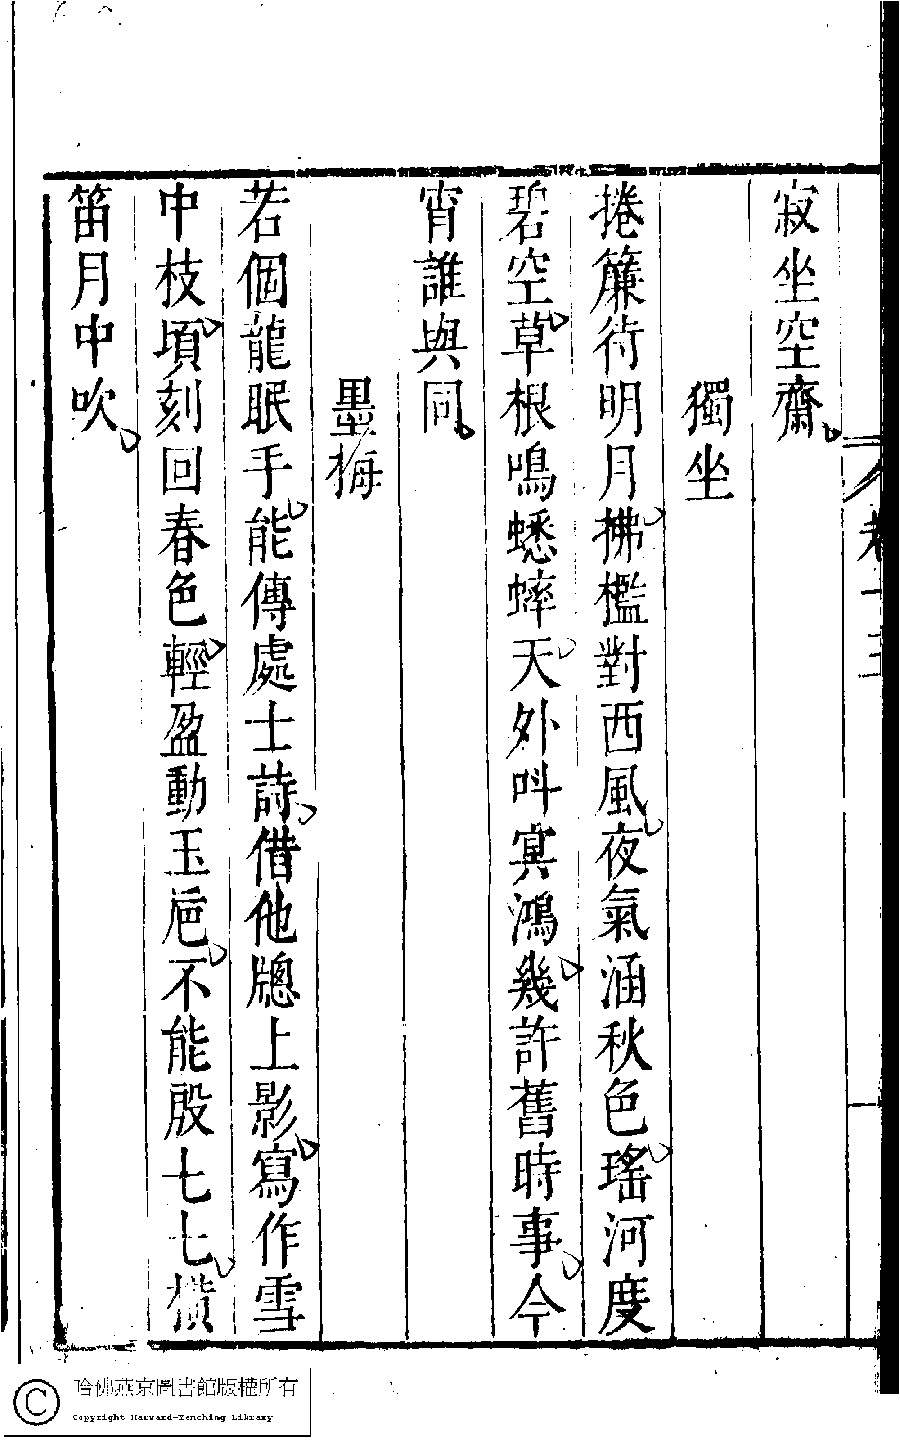 寂坐空齋
獨坐
捲簾待明月拂檻對西風夜氣涵秋色瑤河度
碧空草根鳴蟋蟀天外叫寞鴻幾許舊時事今
宵誰與同
墨梅
若個龍眠手能傳處士詩借他牕上影寫作雪
中枝頃刻回春色輕盈動玉巵不能殷七七橫
笛月中吹
卷十三
哈佛燕京圖書館版權所有
Copyright Harvard-Yenching Library